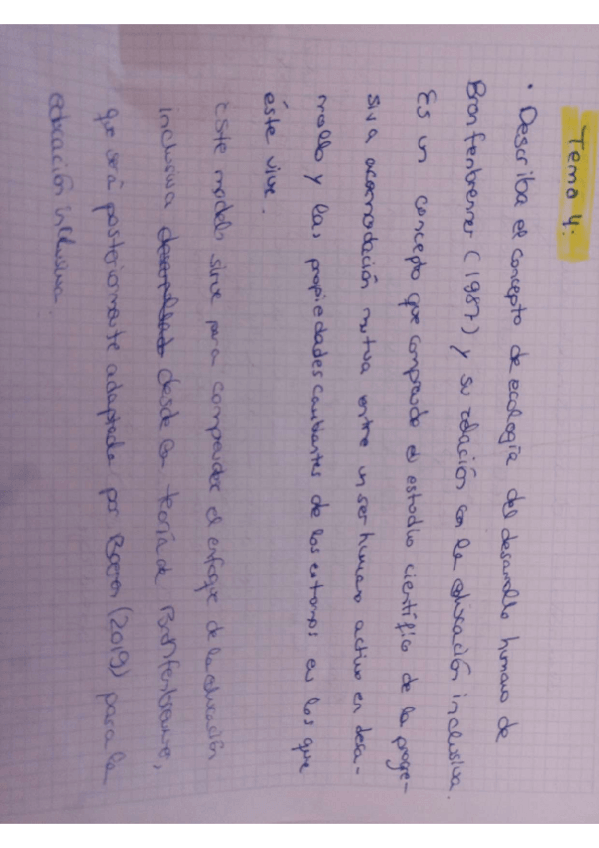 Tema 4:
· Describa el concepto de ecología del desarrollo humano de
Bronfenbrenner (1987) y su relación con la educación inclusiva.
Es un concepto que comprende el estudio científico de la progre-
siva acomodación mutua entre un ser humano activo en desa-
rrollo y las propiedades cambiantes de los entornos en los que
éste vive.
Este modelo sirve para comprender el enfoque de la educación
inclusiva desde la teoría de Bronfenbrenner,
que será posteriormente adaptada por (2019) para la
educación inclusiva.